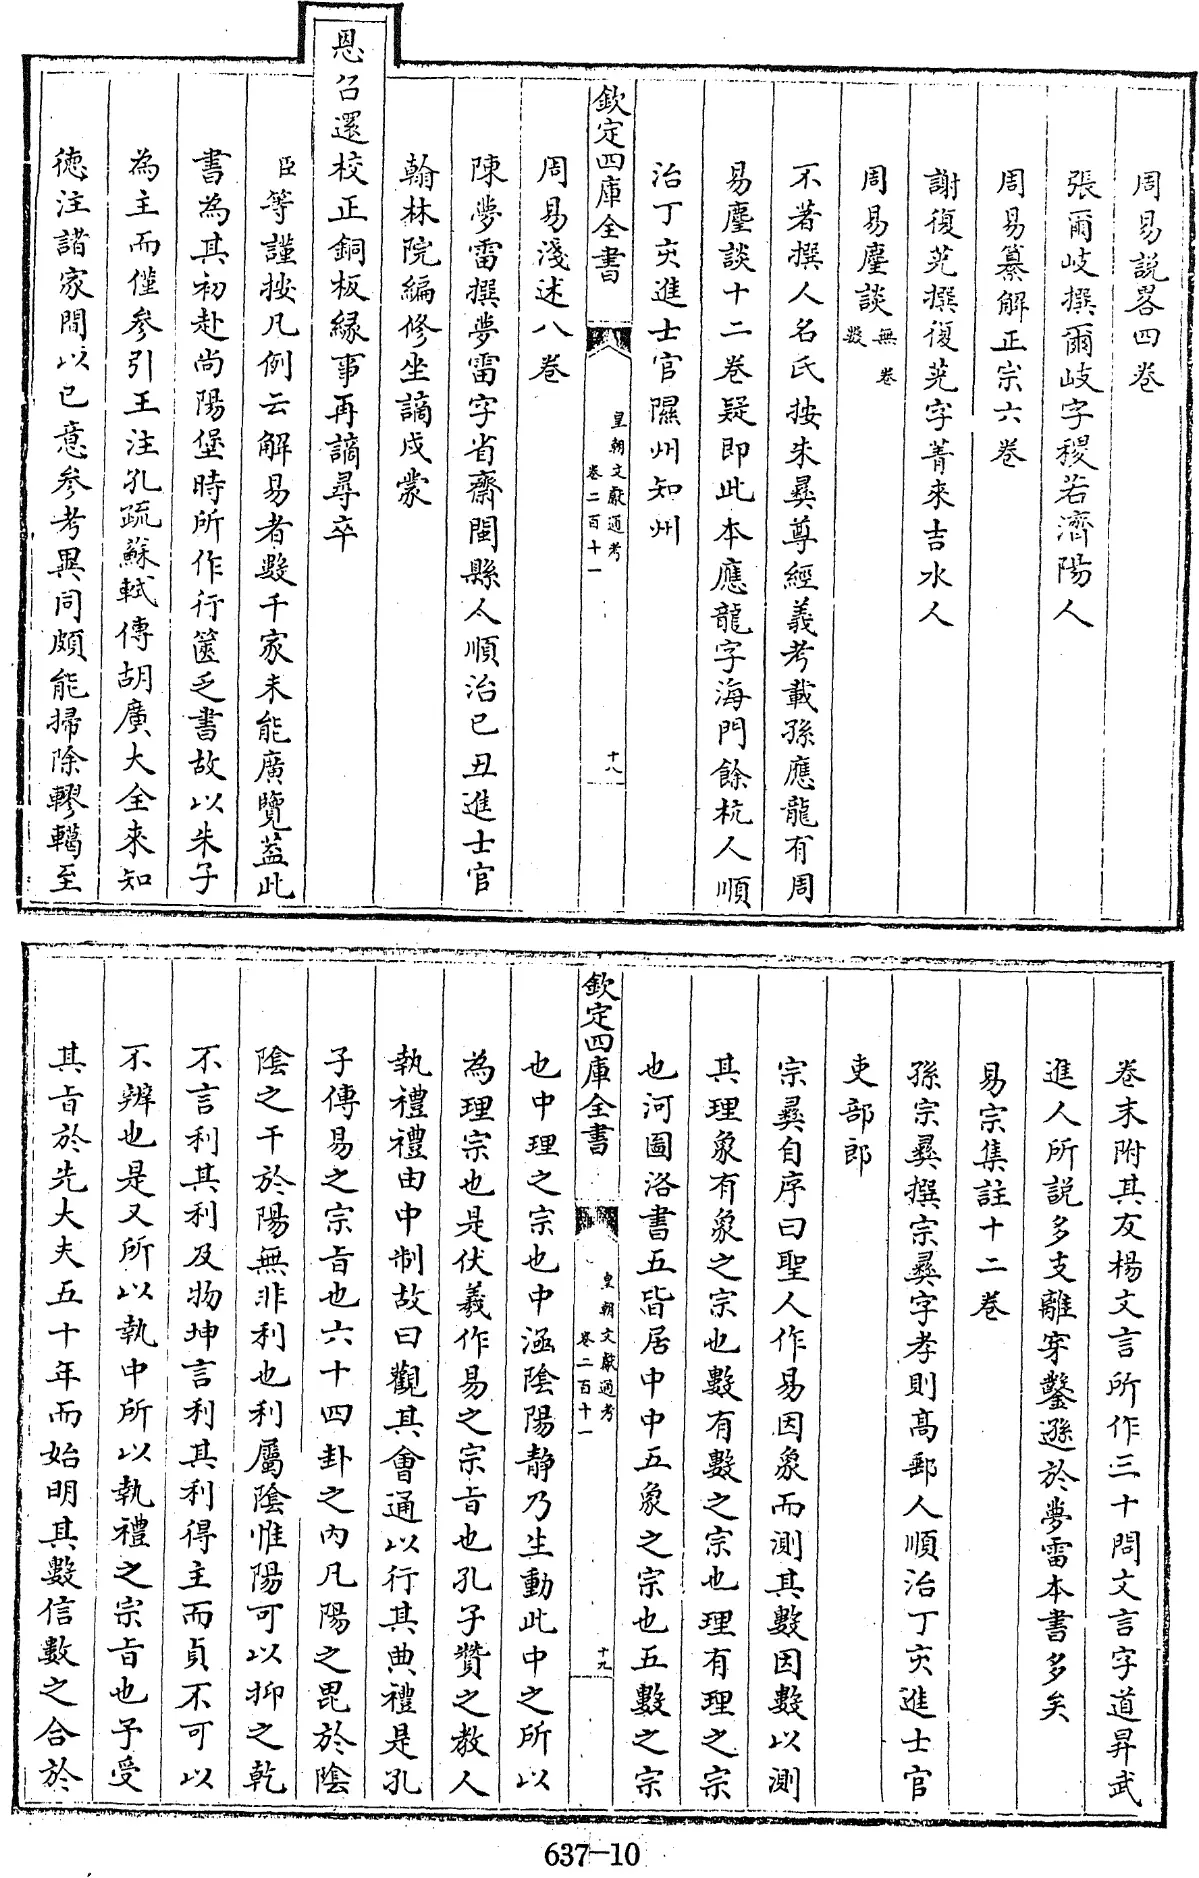 周易説畧四卷
張爾岐撰爾岐字稷若濟陽人
周易纂解正宗六卷
謝復茺撰復茺字菁來吉水人
周易麈談無卷數
不著撰人名氏按朱彝尊經義考載孫應龍有周
易麈談十二卷疑即此本應龍字海門餘杭人順
治丁亥進士官隰州知州
欽定四庫全書
皇朝文獻通考
卷二百十一
十八
周易淺述八卷
陳夢雷撰夢雷字省齋閩縣人順治已丑進士官
翰林院編修坐謫戍蒙
恩召還校正銅板緣事再謫尋卒
臣等謹按凡例云解易者數千家未能廣覽葢此
書為其初赴尚陽堡時所作行篋乏書故以朱子
為主而僅參引王注孔疏蘇軾傳胡廣大全來知
徳注諸家間以已意參考異同頗能掃除轇轕至
卷末附其友楊文言所作三十問文言字道昇武
進人所説多支離穿鑿遜於夢雷本書多矣
易宗集註十二卷
孫宗彝撰宗彝字孝則高郵人順治丁亥進士官
吏部郎
宗彝自序曰聖人作易因象而測其數因數以測
其理象有象之宗也數有數之宗也理有理之宗
也河圖洛書五皆居中中五象之宗也五數之宗
欽定四庫全書
皇朝文獻通考
卷二百十一
十九
也中理之宗也中涵陰陽静乃生動此中之所以
為理宗也是伏羲作易之宗旨也孔子贊之教人
執禮禮由中制故曰觀其會通以行其典禮是孔
子傳易之宗旨也六十四卦之内凡陽之毘於陰
陰之干於陽無非利也利屬陰惟陽可以抑之乾
不言利其利及物坤言利其利得主而貞不可以
不辨也是又所以執中所以執禮之宗旨也予受
其旨於先大夫五十年而始明其數信數之合於
637-10